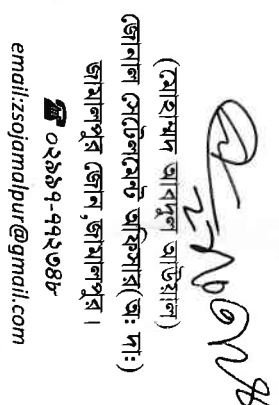 (মোহাম্মদ আবদুল আউয়াল)
জোনাল সেটেলমেন্ট অফিসার(অঃ দাঃ)
জামালপুর জোন, জামালপুর।
☎ ০২৯৯৭-৭৭২৩৪৮
email:zsojamalpur@gmail.com